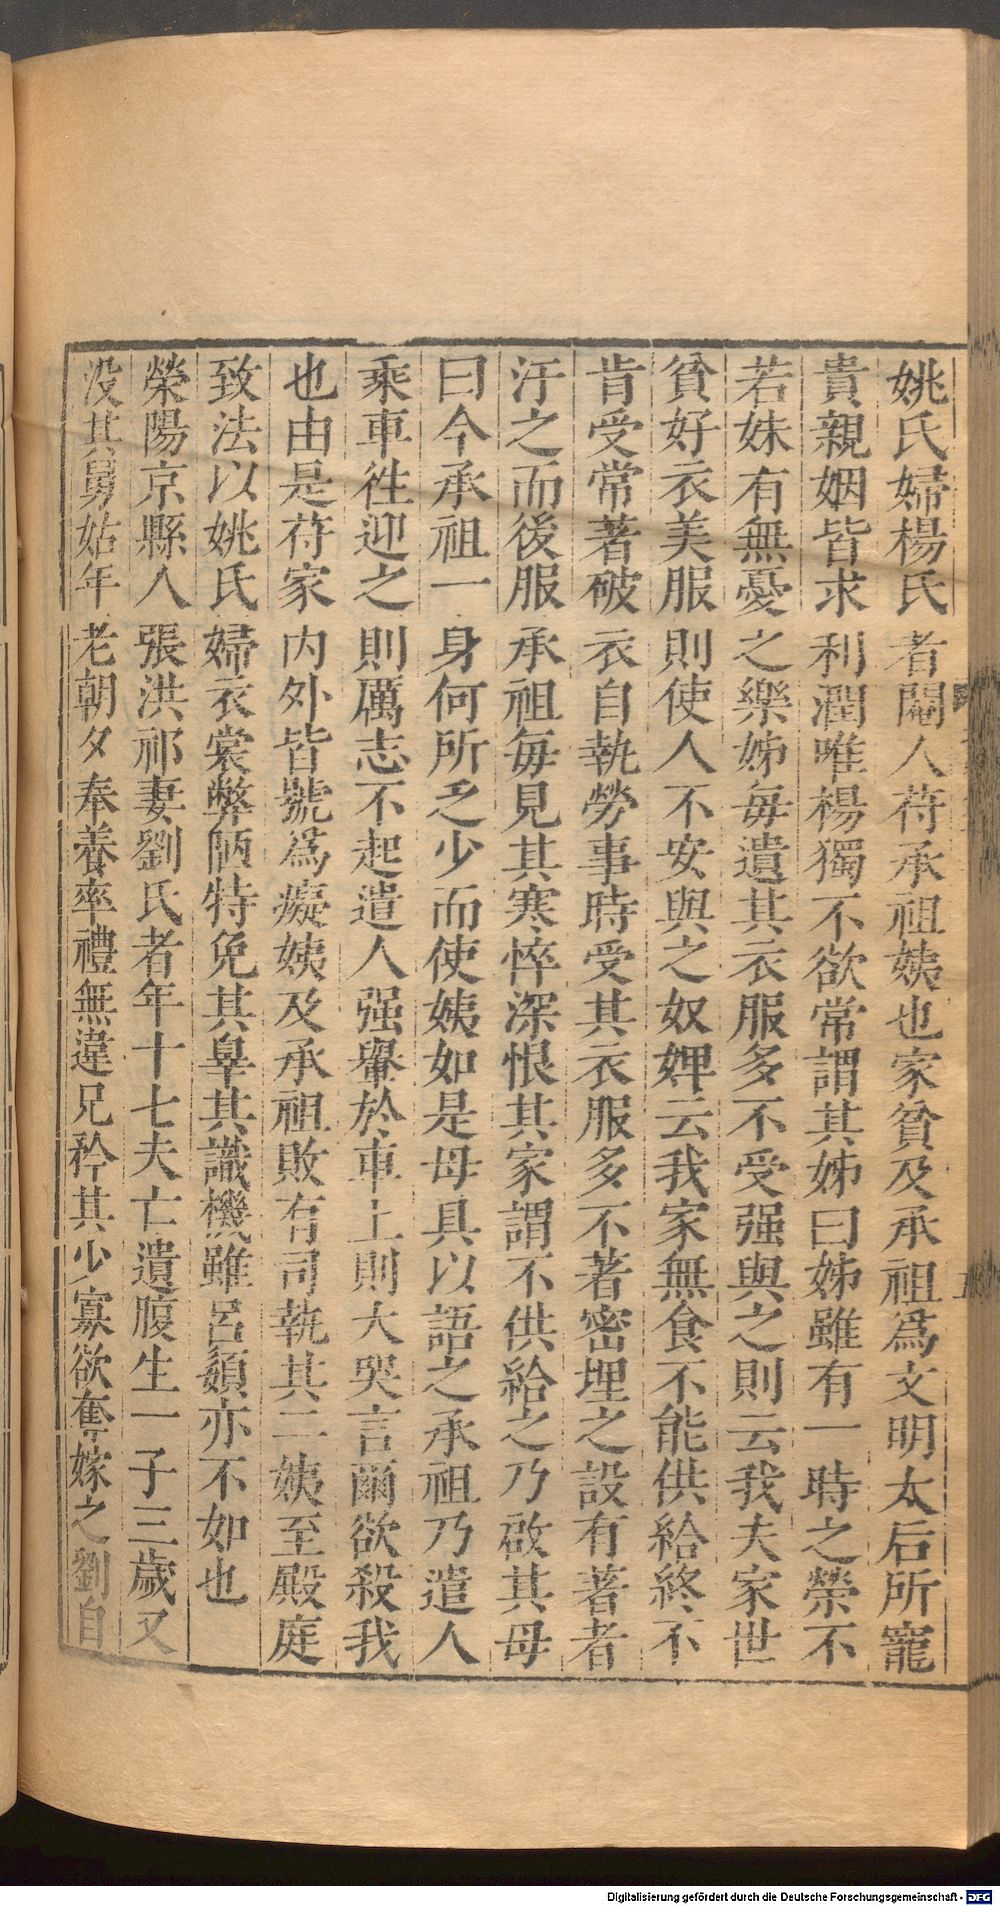 姚氏婦楊氏者閹人苻承祖姨也家貧及承祖爲文明太后所寵
貴親姻皆求利潤唯楊獨不欲常謂其姊曰姊雖有一時之榮不
若妹有無憂之樂姊每遺其衣服多不受强與之則云我夫家世
貧好衣美服則使人不安與之奴婢云我家無食不能供給終不
肯受常著破衣自執勞事時受其衣服多不著密埋之設有著者
汙之而後服承祖每見其寒悴深恨其家謂不供給之乃啟其母
曰今承祖一身何所乏少而使姨如是母具以語之承祖乃遣人
乘車徃迎之則厲志不起遣人强轝於車上則大哭言爾欲殺我
也由是苻家内外皆號爲癡姨及承祖敗有司執其二姨至殿庭
致法以姚氏婦衣裳弊陋特免其辠其識機雖呂嬃亦不如也
榮陽京縣人張洪祁妻劉氏者年十七夫亡遺腹生一子三歲又
没其舅姑年老朝夕奉養率禮無違兄矜其少寡欲奪嫁之劉自
Digitalisierung gefördert durch die Deutsche Forschungsgemeinschaft - DFG